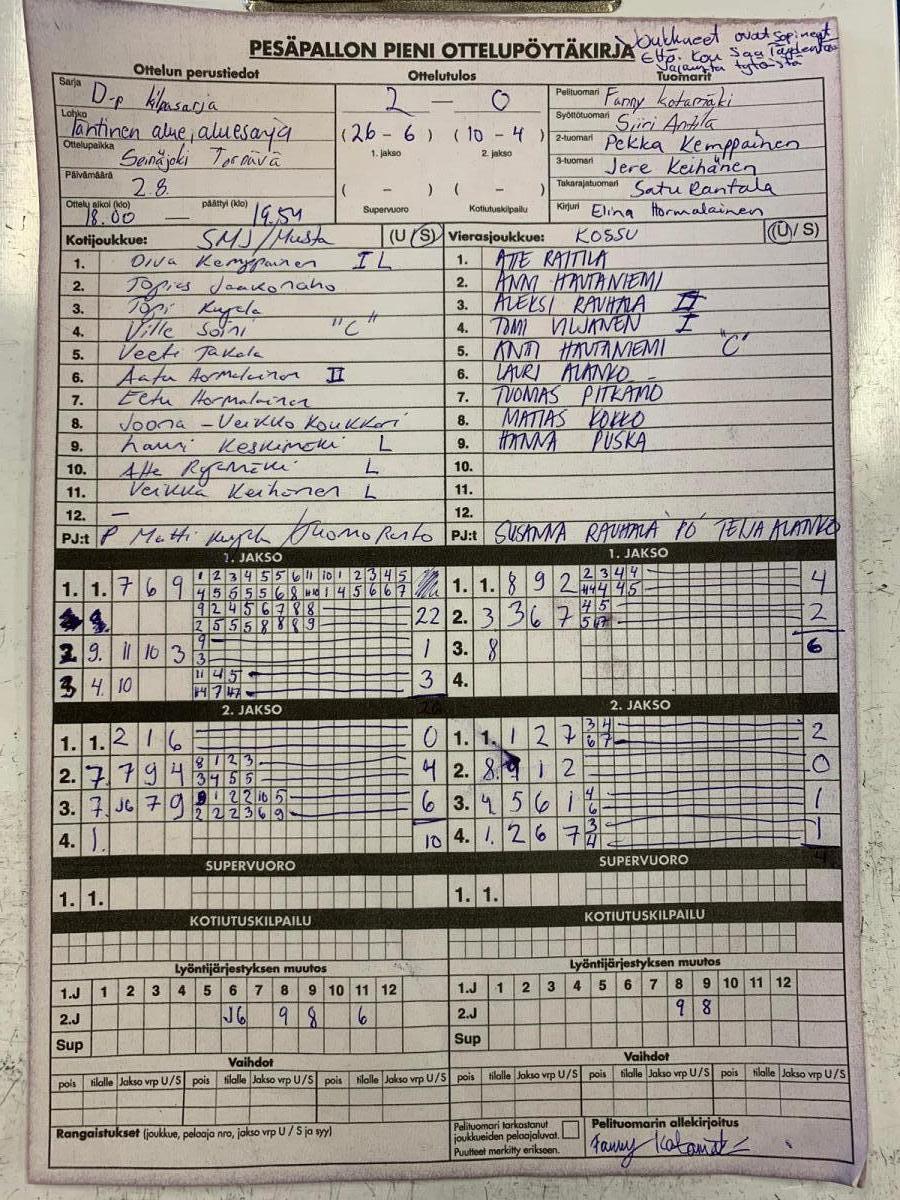 PESÄPALLON PIENI OTTELUPÖYTÄKIRJA
Joukkueet ovat sopineet
että Kou saa täydentää
Ottelun perustiedot
Ottelutulos
Tuomarit
Sarja D-p kilpasarja
Lohko Läntinen alue, aluesarja
Ottelupaikka Seinäjoki Törnävä
Päivämäärä 2.8.
Ottelu alkoi (klo) päättyi (klo)
18.00 — 19.54
2 — 0
(26 - 6) (10 - 4)
1. jakso 2. jakso
( - ) ( - )
Supervuoro Kotiutuskilpailu
Pelituomari Fanny Kotamäki
Syöttötuomari Siiri Anttila
2-tuomari Pekka Kemppainen
3-tuomari Jere Keihänen
Takarajatuomari Satu Rantala
Kirjuri Elina Hormalainen
Kotijoukkue: SMJ/Musta (U/S)
1. Oiva Kemppainen I L
2. Topias Jaakonaho
3. Topi Kujala
4. Ville Soini "C"
5. Veeti Takala
6. Aatu Hormalainen II
7. Eetu Hormalainen
8. Joona-Veikko Koukkari
9. Lauri Keskimäki L
10. Atte L
11. Veikka Keihänen L
12. —
PJ:t P Matti Kujala /
Vierasjoukkue: KOSSU (U/S)
1. ATTE RAITILA
2. ANNI HAUTANIEMI
3. ALEKSI RAUHALA II
4. TOMI VILJANEN I
5. ANTTI HAUTANIEMI "C"
6. LAURI ALANKO
7. TUOMAS PITKÄMÖ
8. MATIAS KOKKO
9. HANNA PUSKA
10.
11.
12.
PJ:t SUSANNA RAUHALA PÖ TEIJA ALANKO
1. JAKSO
1. 1. 7 6 9
1 2 3 4 5 5 6 11 10 1 2 3 4 5
9 2 4 5 6 7 8 8
2 5 5 5 8 8 8 9
22
2 9. 11 10 3
9
3
1
3 4. 10
11 4 5
3
1. JAKSO
1. 1. 8 9 2
2 3 4 4
4
2. 3 3 6 7
4 5
2
3. 8
6
4.
2. JAKSO
1. 1. 2 1 6 0
2. 7. 7 9 4
8 1 2 3
3 4 5 5
4
3. 7. J6 7 9
1 2 2 10 5
2 2 2 3 6 9
6
4. 1. 10
2. JAKSO
1. 1. 1 2 7
3 4
6 7
2
2. 8. 9 1 2 0
3. 4 5 6 1
4
6
1
4. 1. 2 6 7
3
4
1
SUPERVUORO
1. 1.
SUPERVUORO
1. 1.
KOTIUTUSKILPAILU
KOTIUTUSKILPAILU
Lyöntijärjestyksen muutos
1.J 1 2 3 4 5 6 7 8 9 10 11 12
2.J J6 9 8 6
Sup
Lyöntijärjestyksen muutos
1.J 1 2 3 4 5 6 7 8 9 10 11 12
2.J 9 8
Sup
Vaihdot
pois tilalle Jakso vrp U/S pois tilalle Jakso vrp U/S pois tilalle Jakso vrp U/S
Vaihdot
pois tilalle Jakso vrp U/S pois tilalle Jakso vrp U/S pois tilalle Jakso vrp U/S
Rangaistukset (joukkue, pelaaja nro, jakso vrp U / S ja syy)
Pelituomari tarkastanut
joukkueiden pelaajaluvat.
Puutteet merkitty erikseen.
Pelituomarin allekirjoitus
Fanny Kotamäki